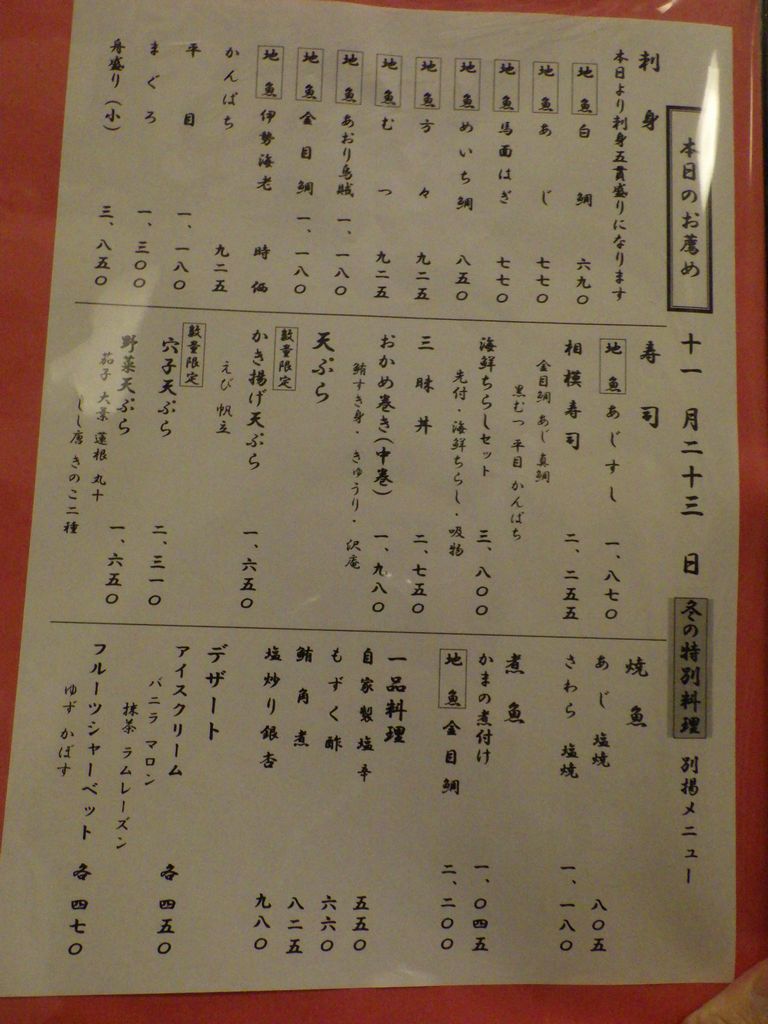 本日のお薦め 十一月二十三日 冬の特別料理 別掲メニュー
刺身
本日より刺身五貫盛りになります
地魚 白鯛 六九〇
地魚 あじ 七七〇
地魚 馬面はぎ 七七〇
地魚 めいち鯛 八五〇
地魚 方々 九二五
地魚 むつ 九二五
地魚 あおり烏賊 一、一八〇
地魚 金目鯛 一、一八〇
地魚 伊勢海老 時価
かんぱち 九二五
平目 一、一八〇
まぐろ 一、三〇〇
舟盛り(小) 三、八五〇
寿司
地魚 あじすし 一、八七〇
相模寿司 二、二五五
金目鯛 あじ 真鯛
黒むつ 平目 かんぱち
海鮮ちらしセット 三、八〇〇
先付・海鮮ちらし・吸物
三昧丼 二、七五〇
おかめ巻き(中巻) 一、九八〇
鮪すき身・きゅうり・沢庵
天ぷら
数量限定
かき揚げ天ぷら 一、六五〇
えび 帆立
数量限定
穴子天ぷら 二、三一〇
野菜天ぷら 一、六五〇
茄子 大葉 蓮根 丸十
しし唐 きのこ二種
焼魚
あじ 塩焼 八〇五
さわら 塩焼 一、一八〇
煮魚
かまの煮付け 一、〇四五
地魚 金目鯛 二、二〇〇
一品料理
自家製塩辛 五五〇
もずく酢 六六〇
鮪角煮 八二五
塩炒り銀杏 九八〇
デザート
アイスクリーム 各四五〇
バニラ マロン
抹茶 ラムレーズン
フルーツシャーベット 各四七〇
ゆず かぼす